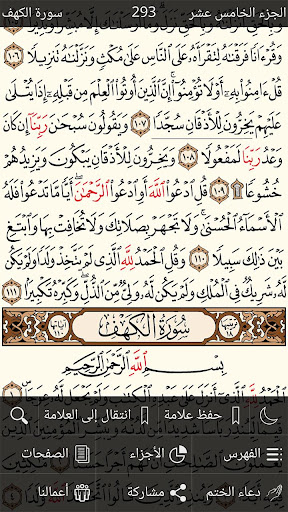 الجزء الخامس عشر 293 سورة الكهف
وَقُرْءَانًا فَرَقْنَٰهُ لِتَقْرَأَهُۥ عَلَى ٱلنَّاسِ عَلَىٰ مُكْثٍ وَنَزَّلْنَٰهُ تَنزِيلًا ١٠٦
قُلْ ءَامِنُوا۟ بِهِۦٓ أَوْ لَا تُؤْمِنُوٓا۟ ۚ إِنَّ ٱلَّذِينَ أُوتُوا۟ ٱلْعِلْمَ مِن قَبْلِهِۦٓ إِذَا يُتْلَىٰ
عَلَيْهِمْ يَخِرُّونَ لِلْأَذْقَانِ سُجَّدًا ١٠٧ وَيَقُولُونَ سُبْحَٰنَ رَبِّنَآ إِن كَانَ
وَعْدُ رَبِّنَا لَمَفْعُولًا ١٠٨ وَيَخِرُّونَ لِلْأَذْقَانِ يَبْكُونَ وَيَزِيدُهُمْ
خُشُوعًا ۩ ١٠٩ قُلِ ٱدْعُوا۟ ٱللَّهَ أَوِ ٱدْعُوا۟ ٱلرَّحْمَٰنَ ۖ أَيًّا مَّا تَدْعُوا۟ فَلَهُ
ٱلْأَسْمَآءُ ٱلْحُسْنَىٰ ۚ وَلَا تَجْهَرْ بِصَلَاتِكَ وَلَا تُخَافِتْ بِهَا وَٱبْتَغِ
بَيْنَ ذَٰلِكَ سَبِيلًا ١١٠ وَقُلِ ٱلْحَمْدُ لِلَّهِ ٱلَّذِى لَمْ يَتَّخِذْ وَلَدًا وَلَمْ يَكُن
لَّهُۥ شَرِيكٌ فِى ٱلْمُلْكِ وَلَمْ يَكُن لَّهُۥ وَلِىٌّ مِّنَ ٱلذُّلِّ ۖ وَكَبِّرْهُ تَكْبِيرًۢا ١١١
سُورَةُ الكَهْفِ
بِسْمِ ٱللَّهِ ٱلرَّحْمَٰنِ ٱلرَّحِيمِ
حفظ علامة انتقال إلى العلامة
الفهرس الأجزاء الصفحات
دعاء الختم مشاركة أعمالنا